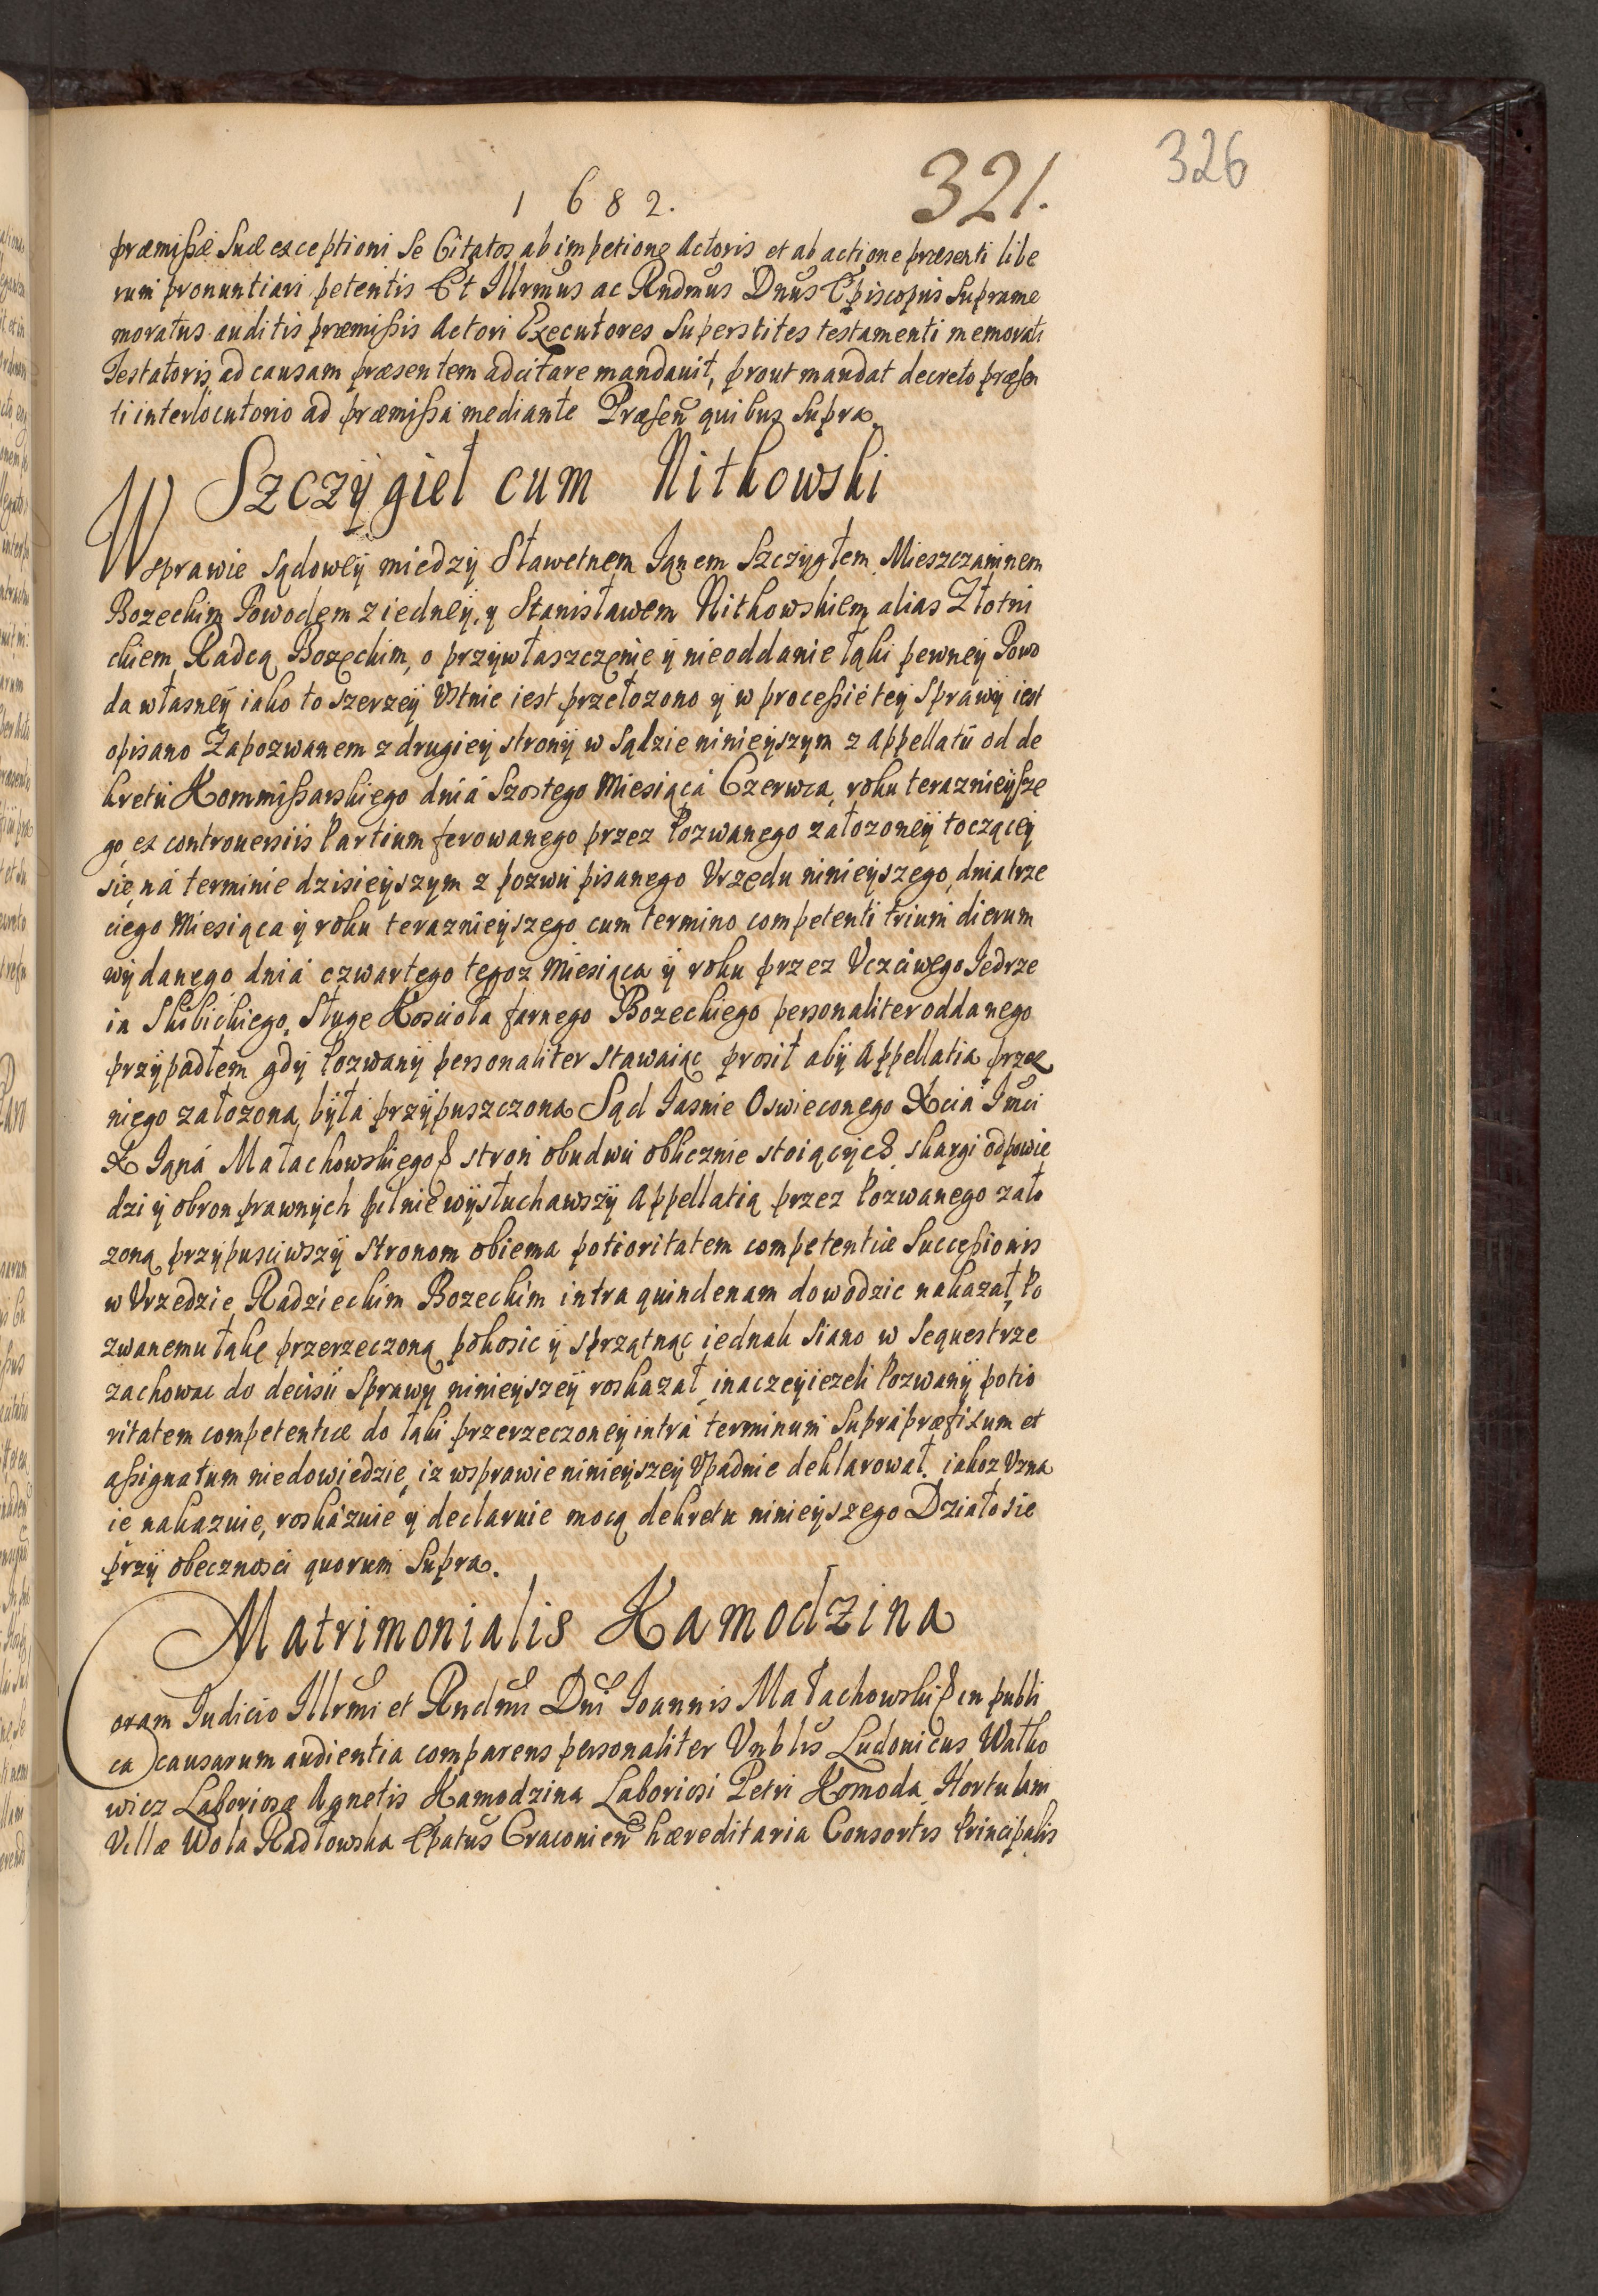 326
321.
1 6 8 2.
præmißæ Suæ exceptioni Se Citatos ab impetione Actoris et ab actione præsenti libe
rum pronuntiari petentis Et Illrmus ac Rndmus Dnus Episcopus Suprame
moratus auditis præmißis Actori Executores Superstites testamenti memorati
Testatoris ad causam præsentem adcitare mandauit, prout mandat decreto præsen
ti interlocutorio ad præmißa mediante Præsen quibus Supra.
Szczÿgieł cum Nitkowski
W sprawie sądoweÿ miedzÿ Sławetnem Janem Szczygłem Mieszczaninem
Bozeckim Powodem z iedneÿ, y Stanisławem Nitkowskiem alias Złotni
ckiem Radcą Bozęckim, o przÿwłaszczęnie ÿ nieoddanie łąki pewneÿ Powo
da własneÿ iako to szerzeÿ Vstnie iest przełozono ÿ w proceßie teÿ Sprawÿ iest
opisano Zapozwanem z drugieÿ stronÿ w Sądzie ninieÿszym z Appellatÿ od de
kretu Kommißarskiego dnia Szostego Miesiąca Czerwca, roku teraznieÿsze
go ex controuersiis Partium ferowanego przez Pozwanego załozoneÿ toczączeÿ
się, ná terminie dzisieÿszym z pozwu pisanego Vrzędu ninieÿszego, dnia trze
ciego Miesiąca ÿ roku teraznieÿszego cum termino competenti trium dierum
wÿdanego dnia czwartego tegoz Miesiąca ÿ roku przez Vczciwego Jedrze
ia Skibickiego, Sługe Koscioła farnego Bozeckiego personaliter oddanego
przÿpadłem gdÿ Pozwanÿ personaliter stawaiąc prosił abÿ Appellatia przez
niego załozona bÿła przÿpuszczona Sąd Iasnie Oswieconego Xcia Imci
X Iąná Małachowskiego stron obudwu oblicznie stoiącÿch skargi odpowie
dzi ÿ obron prawnych pilnie wÿsłuchawszÿ Appellatią przez Pozwanego zało
zoną przÿpusciwszÿ Stronom obiema potioritatem competentiæ Succeßionis
w Vrzedzie Radzieckim Bozeckim intra quindenam dowodzic nakazał, Po
zwanemu łąkę przerzeczoną pokosic ÿ sprzątnąc iednak siano w Sequestrze
zachowac do decisii Sprawy ninieÿszeÿ roskazał, inaczeÿ iezeli Pozwanÿ potio
ritatem competentiæ do łąki przerzeczoneÿ intra terminum Supra præfixum et
aßignatum niedowiedzie, iz w sprawie ninieÿszeÿ Vpadnie deklarował. iakoz Vzna
ie nakazuie, roskazuie ÿ declaruie mocą dekretu ninieÿszego Działo sie
przÿ obecznosci quorum Supra.
Matrimonialis Kamodzina
Coram Iudicio Illrmi et Rndmi Dni Ioannis Małachowski in publi
ca causarum audientia comparens personaliter Vnblis Ludouicus Watko
wicz Laboriosæ Agnetis Kamodzina Laboriosi Petri Komoda Hortulani
Villæ Wola Radłowska Epatus Cracouien hæreditaria Consortis Principalis